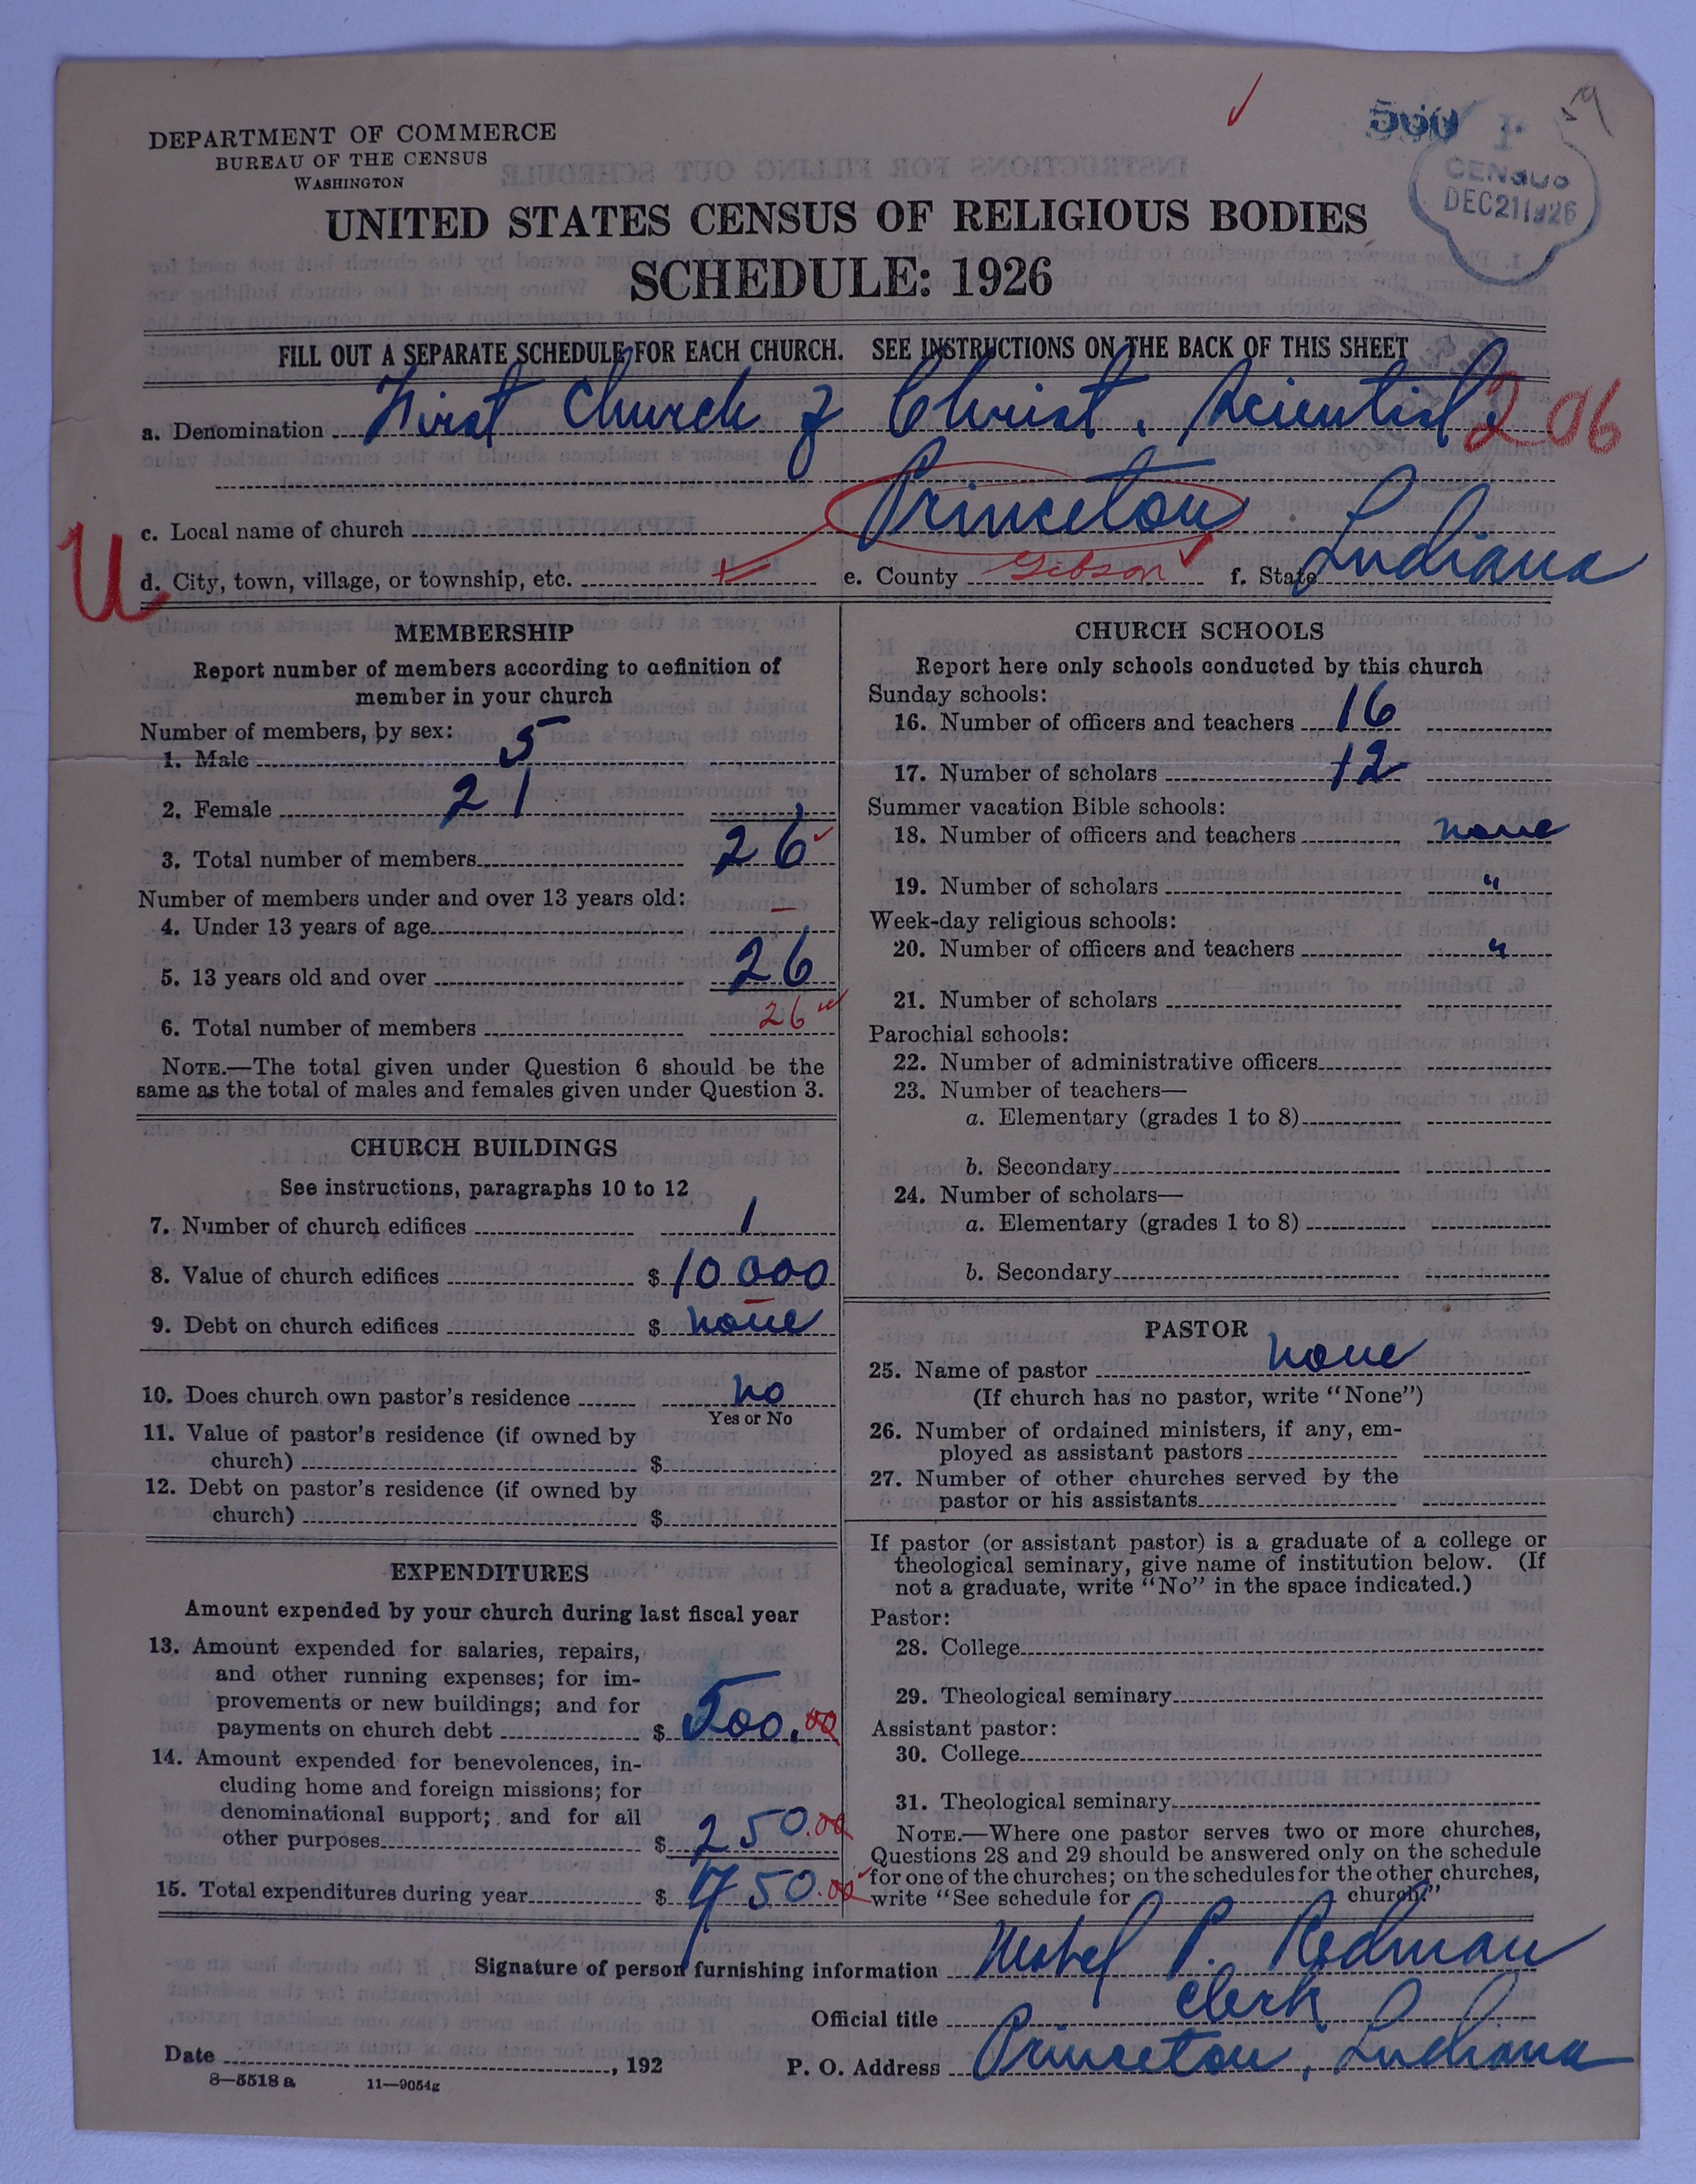 DEPARTMENT OF COMMERCE
BUREAU OF THE CENSUS
WASHINGTON
CENSUS
DEC 21 1926
UNITED STATES CENSUS OF RELIGIOUS BODIES
SCHEDULE: 1926
FILL OUT A SEPARATE SCHEDULE FOR EACH CHURCH. SEE INSTRUCTIONS ON THE BACK OF THIS SHEET
a. Denomination First Church of Christ, Scientist 206
c. Local name of church Princeton
U
d. City, town, village, or township, etc. e. County Gibson f. State Indiana
MEMBERSHIP
Report number of members according to definition of
member in your church
Number of members, by sex:
1. Male 5
2. Female 21
3. Total number of members 26
Number of members under and over 13 years old:
4. Under 13 years of age –
5. 13 years old and over 26
6. Total number of members 26
NOTE.—The total given under Question 6 should be the
same as the total of males and females given under Question 3.
CHURCH BUILDINGS
See instructions, paragraphs 10 to 12
7. Number of church edifices 1
8. Value of church edifices $ 10 000
9. Debt on church edifices $ none
10. Does church own pastor's residence no
Yes or No
11. Value of pastor's residence (if owned by
church) $
12. Debt on pastor's residence (if owned by
church) $
EXPENDITURES
Amount expended by your church during last fiscal year
13. Amount expended for salaries, repairs,
and other running expenses; for im-
provements or new buildings; and for
payments on church debt $ 500.00
14. Amount expended for benevolences, in-
cluding home and foreign missions; for
denominational support; and for all
other purposes $ 250.00
15. Total expenditures during year $ 750.00
CHURCH SCHOOLS
Report here only schools conducted by this church
Sunday schools:
16. Number of officers and teachers 16
17. Number of scholars 12
Summer vacation Bible schools:
18. Number of officers and teachers none
19. Number of scholars "
Week-day religious schools:
20. Number of officers and teachers "
21. Number of scholars
Parochial schools:
22. Number of administrative officers
23. Number of teachers—
a. Elementary (grades 1 to 8)
b. Secondary
24. Number of scholars—
a. Elementary (grades 1 to 8)
b. Secondary
PASTOR
25. Name of pastor none
(If church has no pastor, write "None")
26. Number of ordained ministers, if any, em-
ployed as assistant pastors
27. Number of other churches served by the
pastor or his assistants
If pastor (or assistant pastor) is a graduate of a college or
theological seminary, give name of institution below. (If
not a graduate, write "No" in the space indicated.)
Pastor:
28. College
29. Theological seminary
Assistant pastor:
30. College
31. Theological seminary
NOTE.—Where one pastor serves two or more churches,
Questions 28 and 29 should be answered only on the schedule
for one of the churches; on the schedules for the other churches,
write "See schedule for church."
Signature of person furnishing information Mabel P. Redman
Official title Clerk
Date , 192 P. O. Address Princeton, Indiana
8—5518 a 11—9054g